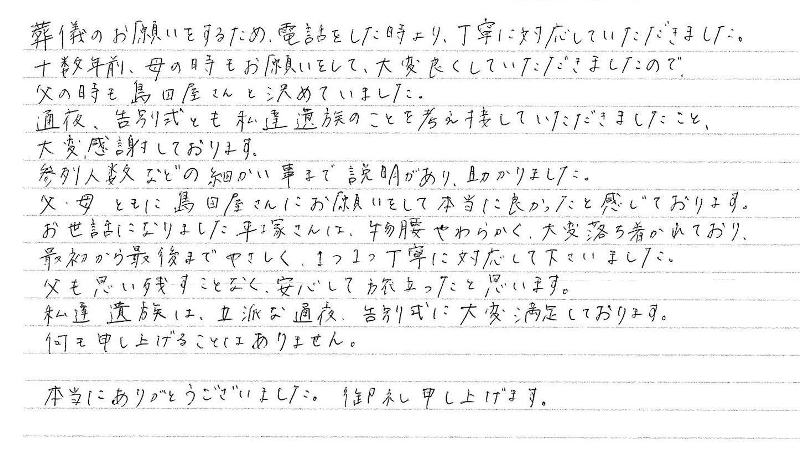 葬儀のお願いをするため、電話をした時より、丁寧に対応していただきました。
十数年前、母の時もお願いをして、大変良くしていただきましたので、
父の時も島田屋さんと決めていました。
通夜、告別式とも私達遺族のことを考え接していただきましたこと、
大変感謝しております。
参列人数などの細かい事まで説明があり、助かりました。
父・母ともに島田屋さんにお願いをして本当に良かったと感じております。
お世話になりました平塚さんは、物腰やわらかく、大変落ち着かれており、
最初から最後までやさしく、1つ1つ丁寧に対応して下さいました。
父も思い残すことなく、安心して旅立ったと思います。
私達遺族は、立派な通夜、告別式に大変満足しております。
何も申し上げることはありません。
本当にありがとうございました。御礼申し上げます。